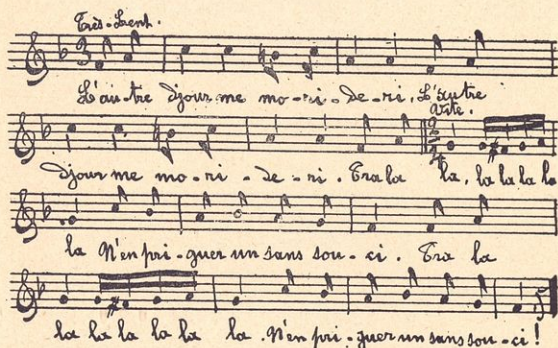 Très-Lent.
L'au-tre djour me mo-ri-de-ri. L'autre
Vite.
djour me mo-ri-de-ri. Tra la la, la la la la
la N'en pri-guer un sans sou-ci. Tra la
la la la la la la. N'en pri-guer un sans sou-ci!